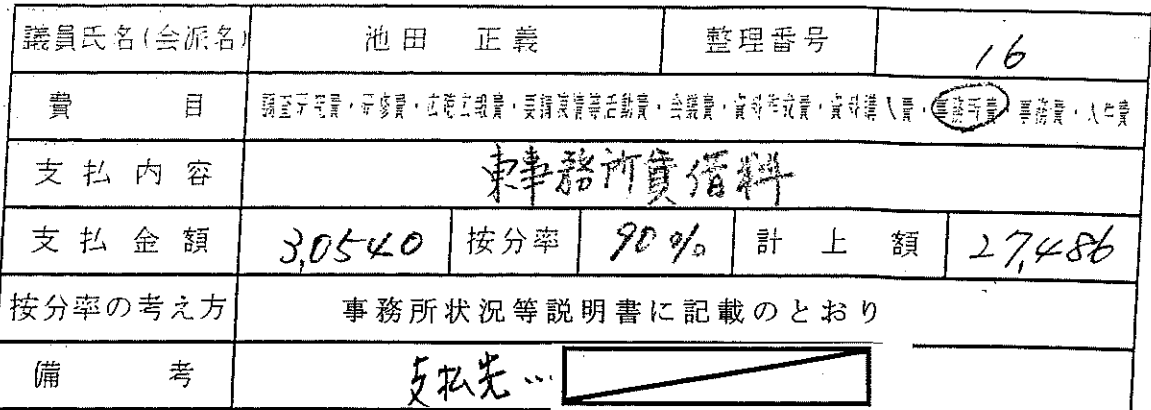 議員氏名(会派名) 池田 正義 整理番号 16
費目 調査研究費・研修費・広聴広報費・要請陳情等活動費・会議費・資料作成費・資料購入費・事務所費・事務費・人件費
支払内容 東事務所賃借料
支払金額 3,0540 按分率 90% 計上額 27,486
按分率の考え方 事務所状況等説明書に記載のとおり
備考 支払先…